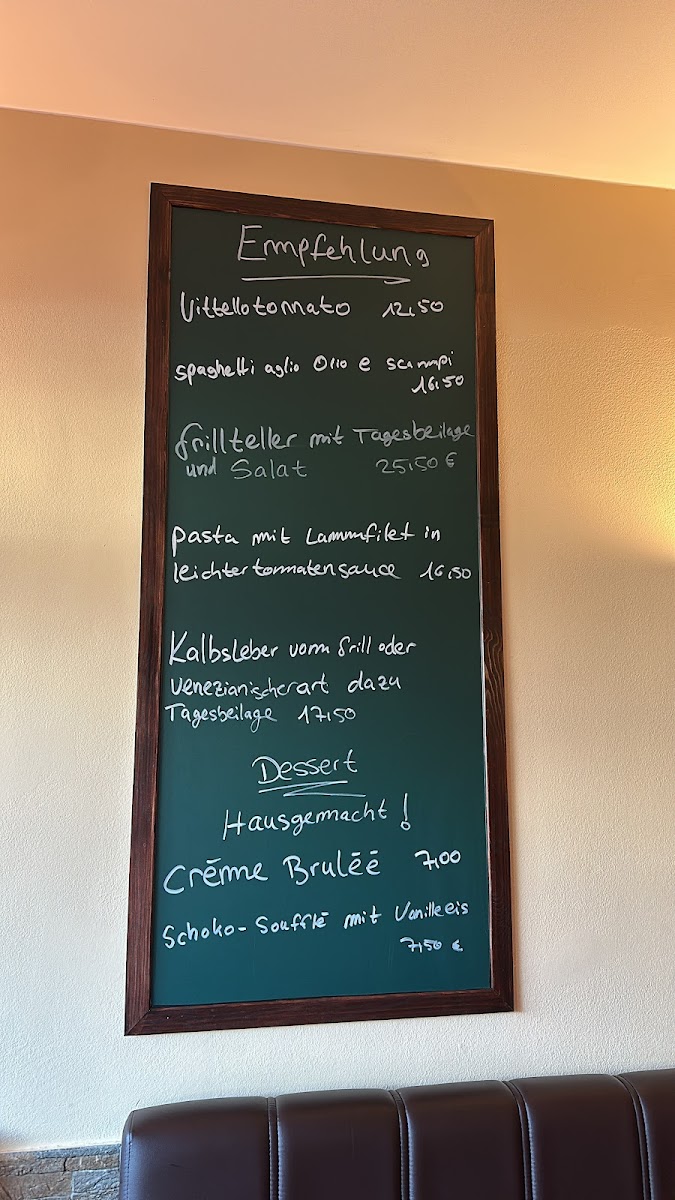 Empfehlung
Vittellotonnato 12,50
spaghetti aglio Olio e scampi
16,50
Grillteller mit Tagesbeilage
und Salat 25,50 €
Pasta mit Lammfilet in
leichter tomatensauce 16,50
Kalbsleber vom Grill oder
venezianischerart dazu
Tagesbeilage 17,50
Dessert
Hausgemacht!
Créme Bruléé 7,00
Schoko-Soufflé mit Vanilleeis
7,50 €